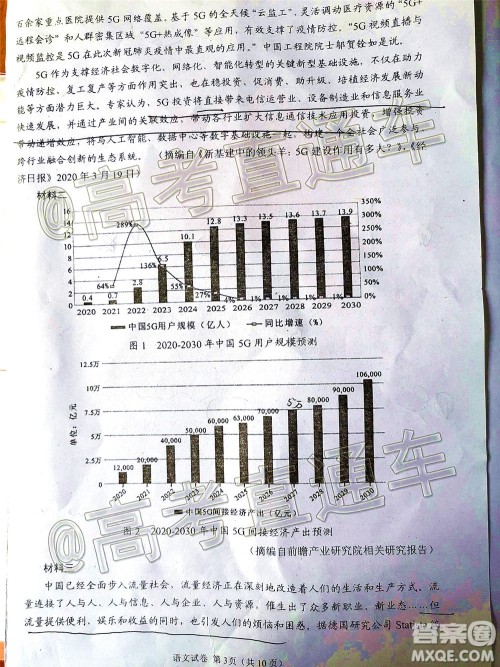 百余家重点医院提供5G网络覆盖,基于5G的全天候“云监工”,灵活调动医疗资源的“5G+
远程会诊”和人群密集区域“5G+热成像”等应用,有效支撑了疫情防控。“5G视频直播与
视频监控是5G在此次新冠肺炎疫情中最直观的应用。”中国工程院院士邬贺铨如是说。
5G作为支撑经济社会数字化、网络化、智能化转型的关键新型基础设施,不仅在助力
疫情防控、复工复产等方面作用突出,也在稳投资、促消费、助升级、培植经济发展新动
能等方面潜力巨大。专家认为,5G投资将直接带来电信运营业、设备制造业和信息服务业
快速发展,并通过产业间的关联效应,带动各行业扩大信息通信技术应用投资,增强投资
带动递增效应,将与人工智能、数据中心等数字基础设施一起,构建一个全社会广泛参与、
跨行业融合创新的生态系统。(摘编自《新基建中的领头羊:5G建设作用有多大?》,《经
济日报》2020年3月19日)
材料二
16 14 12 10 8 6 4 2 0
350% 300% 250% 200% 150% 100% 50% 0%
0.4 0.7 2.8 6.5 10.1 12.8 13.3 13.5 13.6 13.7 13.9
64% 289% 136% 55% 27% 4% 1% 1% 1% 1%
2020 2021 2022 2023 2024 2025 2026 2027 2028 2029 2030
中国5G用户规模(亿人) 同比增速(%)
图1 2020-2030年中国5G用户规模预测
12.5万
10万
7.5万
5万
2.5万
0
单位:亿元
12,000 20,000 40,000 50,000 60,000 63,000 70,000 80,000 90,000 106,000
2020 2021 2022 2023 2024 2025 2026 2027 2028 2029 2030
中国5G间接经济产出(亿元)
图2 2020-2030年中国5G间接经济产出预测
(摘编自前瞻产业研究院相关研究报告)
材料三
中国已经全面步入流量社会,流量经济正在深刻地改造着人们的生活和生产方式。流
量连接了人与人、人与信息、人与企业、人与资源,催生出了众多新职业、新业态……但
流量提供便利、娱乐和收益的同时,也引发人们的烦恼和困惑。据德国研究公司Stati
语文试卷 第3页(共10页)
@高考直通车
@高考直通车
@高考直通车
答案圈
MXQE.COM